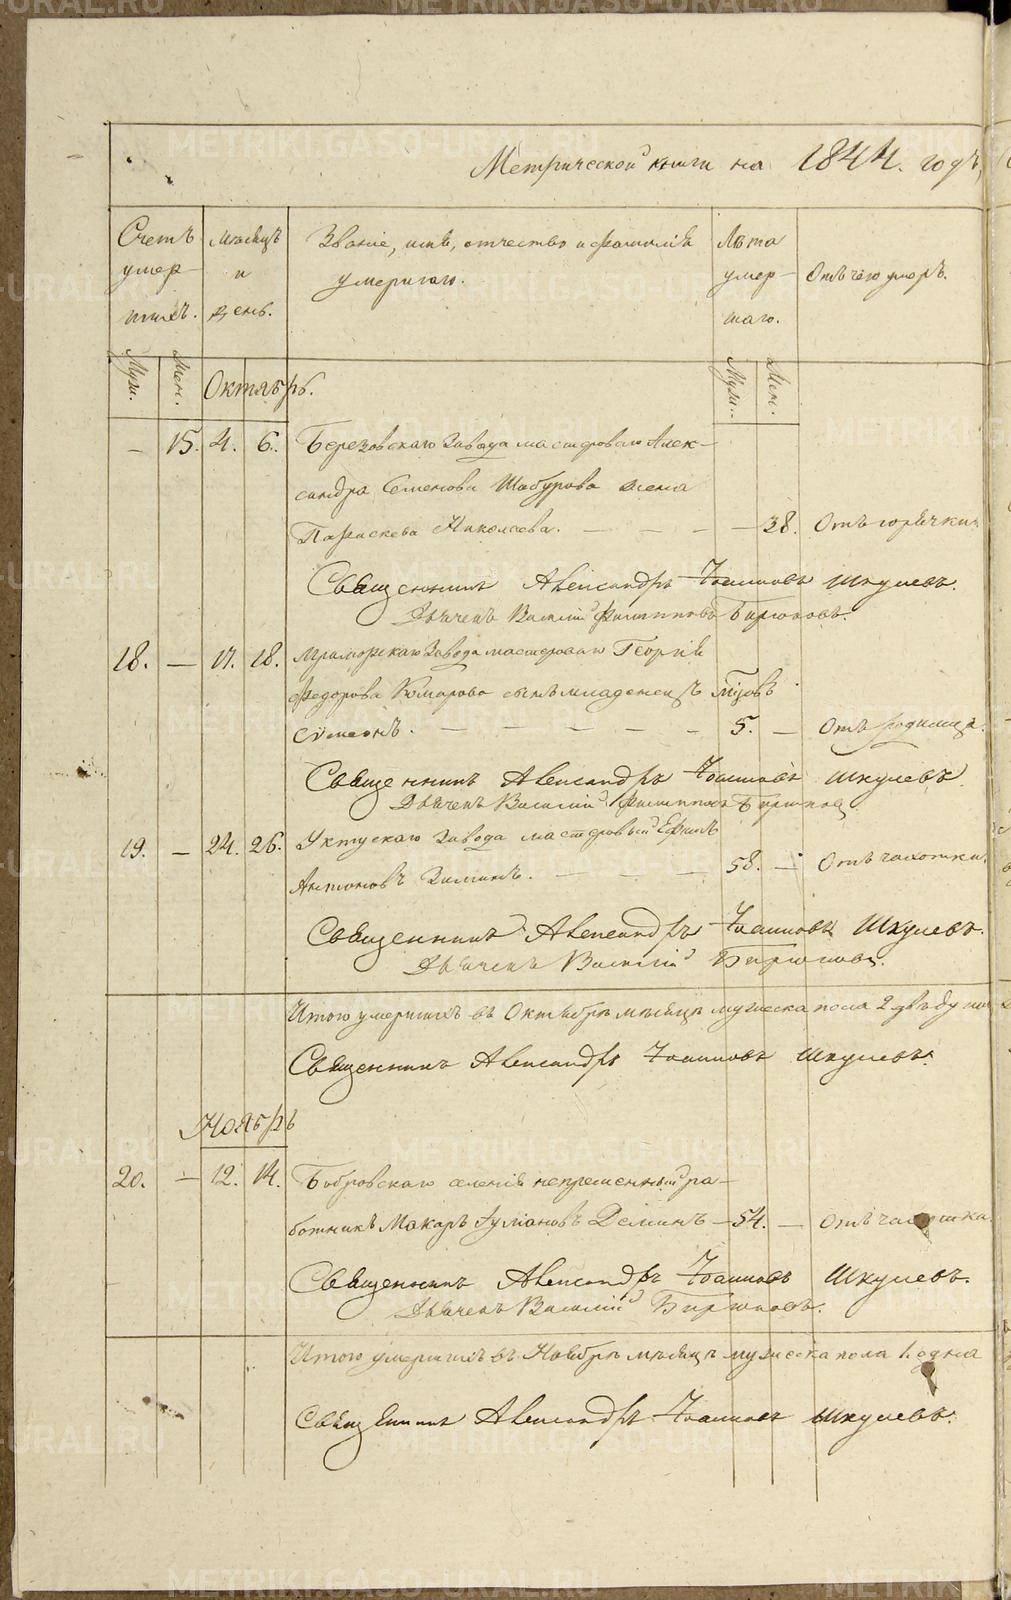 Метрической книги на 1844. годъ,
Счетъ умер- шихъ.
Мѣсяцъ и день.
Званіе, имя, отчество и фамилія умершаго.
Лѣта умер- шаго.
Отъ чего умеръ.
Муж. Жен. Октябрь. Муж. Жен.
– 15. 4. 6. Березовскаго Завода мастероваго Алек-
сандра Семенова Шабурова жена
Параскева Николаева. — — — — 38. Отъ горячки.
Священникъ Александръ Іоанновъ Шкулевъ.
Дьячекъ Василій Филипповъ Бирюковъ.
18. — 17. 18. Мраморскаго Завода мастероваго Георгія
Федорова Комарова сынъ младенецъ
Сѵмеонъ. — — — — — 5. — Отъ родимца.
Священникъ Александръ Іоанновъ Шкулевъ.
Дьячекъ Василій Филипповъ Бирюковъ
19. — 24. 26. Уктускаго Завода мастеровый Ефимъ
Антоновъ Зиминъ. — — — 58. — Отъ чахотки.
Священникъ Александръ Іоанновъ Шкулевъ.
Дьячекъ Василій Бирюковъ.
Итого умершихъ въ Октябрѣ мѣсяцѣ мужеска пола 2 двѣ души
Священникъ Александръ Іоанновъ Шкулевъ.
Ноябрь
20. — 12. 14. Бобровскаго селенія непременный ра-
ботникъ Макаръ Деминъ — 54. — Отъ чахотки.
Священникъ Александръ Іоанновъ Шкулевъ.
Дьячекъ Василій Бирюковъ.
Итого умершихъ въ Ноябрѣ мѣсяцѣ мужеска пола 1. одна
Священникъ Александръ Іоанновъ Шкулевъ.
METRIKI.GASO-URAL.RU